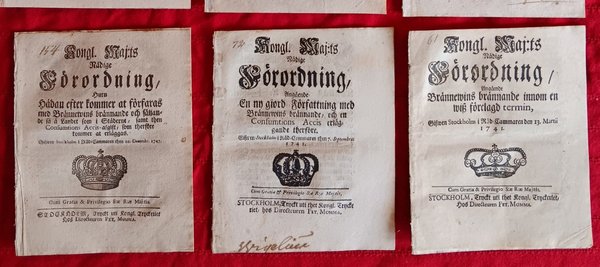 154
Kongl. Maj:ts
Nådige
Förordning/
Huru
Hädan efter kommer at förfaras
med Brännewins brännande och säljan-
de så å Landet som i Städerne, samt then
Consumtions Accis-afgift, som therföre
kommer at erläggas.
Gifwen Stockholm i Råd-Cammaren then
Cum Gratia & Privilegio S:æ R:æ Maj:tis.
STOCKHOLM, Tryckt uti Kongl. Tryckeriet
hos Directeuren PET. MOMMA.
72
Kongl. Maj:ts
Nådige
Förordning/
Angående
En ny giord Författning med
Brännewins brännande, och en
Consumtions Accis erläg-
gande therföre.
Gifwen Stockholm i Råd-Cammaren then 7. Septembris
1741.
Cum Gratia & Privilegio S:æ R:æ Maj:tis.
STOCKHOLM, Tryckt uti thet Kongl. Trycke-
riet, hos Directeuren PET. MOMMA.
61
Kongl. Maj:ts
Nådige
Förordning/
Angående
Brännewins brännande innom en
wiß förelagd termin,
Gifwen Stockholm i Råd-Cammaren den 13. Martii
1741.
Cum Gratia & Privilegio S:æ R:æ Maj:tis.
STOCKHOLM, Tryckt uti thet Kongl. Tryckeriet,
Hos Directeuren PET. MOMMA.